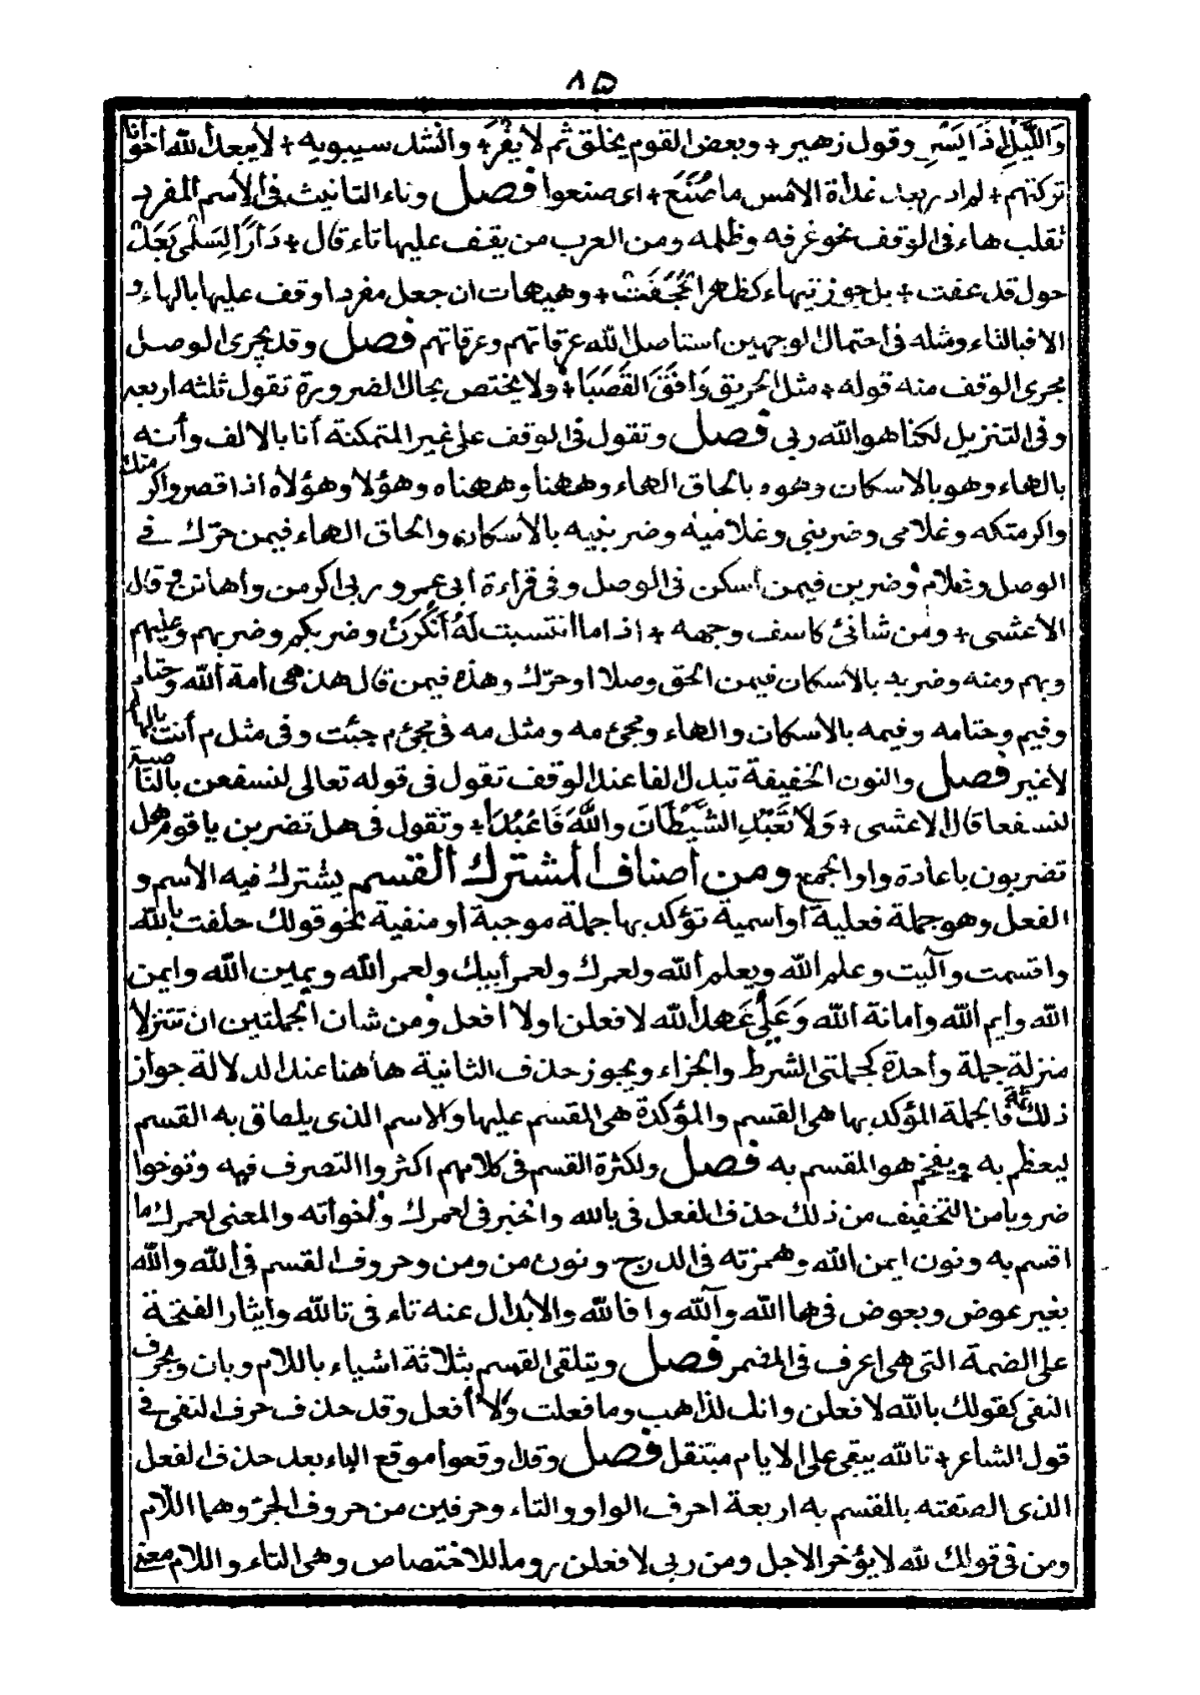 ٨٥
وَاللَّيْلِ إِذَا يَسْرِ وقول زهير + وبعض القوم يخلق ثم لا يَفْرْ + وانشد سيبويه + لا يبعد الله اخوانا
تركتهم + لم ادر بعد غداة الامس ما صُنَعْ + اى صنعوا فصل وتاء التانيث فى الاسم المفرد
تقلب هاء فى الوقف نحو غرفه وظلمه ومن العرب من يقف عليها تاء قال + دَارٌ لِسَلْمٰى بَعْدَ
حول قد عفت + بل جوز تيهاء كظهر الحَجَفَتْ + وهيهات ان جعل مفردا وقف عليها بالهاء و
الا فبالتاء ومثله فى احتمال الوجهين استاصل الله عرقاتهم وعرقاتهم فصل وقد يجرى الوصل
مجرى الوقف منه قوله + مثل الحريق وَافَقَ القَصَبَا + ولا يختص بحال الضرورة تقول ثلثه اربعه
وفى التنزيل لكنا هو الله ربى فصل وتقول فى الوقف على غير المتمكنة أنا بالالف وأنه
بالهاء وهو بالاسكان وهوه بالحاق الهاء وههنا وههناه وهؤلا وهؤلاه اذا قصر واكرمتك
واكرمتكه وغلامى وضربنى وغلاميه وضربنيه بالاسكان والحاق الهاء فيمن حرّك فى
الوصل وغلام وضربن فيمن أسكن فى الوصل وفى قراءة أبى عمرو ربى اكرمن وأهانن وقال
الاعشى + ومن شانئ كاسف وجهه + اذا ما انتسبت لَهُ أنْكَرَنْ وضربكم وضربهم وعليهم
وبهم ومنه وضربه بالاسكان فيمن الحق وصلا او حرّك وهذه فيمن قال هذهى امة الله وحتام
وفيم وحتامه وفيمه بالاسكان والهاء ومجئ مه ومثل مه فى مجئ م جئت وفى مثل م أنت بالهاء
لا غير فصل والنون الخفيفة تبدل الفا عند الوقف تقول فى قوله تعالى لنسفعن بالناصية
لنسفعا قال الاعشى + وَلَا تَعْبُدِ الشَّيْطَانَ وَاللّٰهَ فَاعْبُدَا + وتقول فى هل تضربن يا قوم هل
تضربون باعادة واو الجمع ومن أصناف المشترك القسم يشترك فيه الأسم و
الفعل وهو جملة فعلية أو أسمية تؤكد بها جملة موجبة أو منفية نحو قولك حلفت بالله
واقسمت وآليت وعلم الله ويعلم الله ولعمرك ولعمر أبيك ولعمر الله ويمين الله وايمن
الله وايم الله وأمانة الله وَعَلَىَّ عَهْد الله لافعلن او لا أفعل ومن شان الجملتين ان تتنزلا
منزلة جملة وأحدة كجملتى الشرط والجزاء ويجوز حذف الثانية هأهنا عند الدلالة جواز
ذلك ثمّة فالجملة المؤكد بها هى القسم والمؤكدة هى المقسم عليها والاسم الذى يلصاق به القسم
ليعظم به ويفخم هو المقسم به فصل ولكثرة القسم فى كلامهم اكثروا التصرف فيه وتوخوا
ضروبا من التخفيف من ذلك حذف الفعل فى بالله والخبر فى لعمرك وأخوأته والمعنى لعمرك ما
اقسم به ونون ايمن الله وهمزته فى الدرج ونون من ومن وحروف القسم فى ألله والله
بغير عوض وبعوض فى ها الله وآلله وافالله والأبدال عنه تاء فى تالله وأيثار الفتحة
على الضمة التى هى اعرف فى المضمر فصل ويتلقى القسم بثلاثة اشياء باللام وبان وبحرف
النفى كقولك بالله لافعلن وانك لذاهب وما فعلت ولا أفعل وقد حذف حرف النفى فى
قول الشاعر + تالله يبقى على الايام مبتقل فصل وقد اوقعوا موقع الباء بعد حذف الفعل
الذى الصقته بالمقسم به اربعة احرف الواو والتاء وحرفين من حروف الجرّ وهما اللام
ومن فى قولك لله لا يؤخر الاجل ومن ربى لافعلن روما للاختصاص وهى التاء واللام معنى